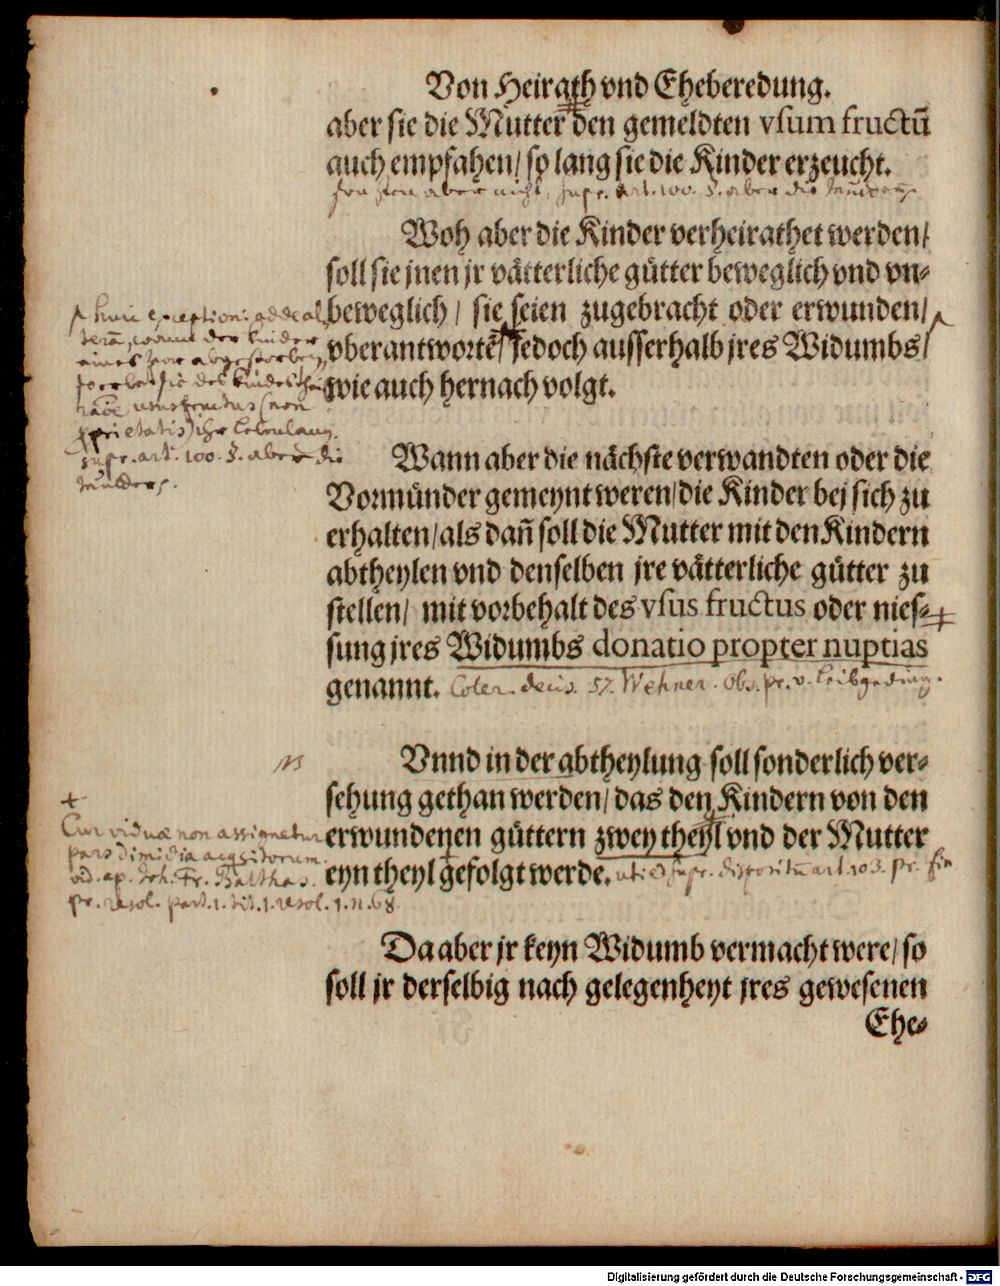 Von Heirath vnd Eheberedung.
aber sie die Mutter den gemeldten vsum fructũ
auch empfahen/ so lang sie die Kinder erzeucht.
aber nicht. supr. art. 100. §. aber die
Woh aber die Kinder verheirathet werden/
soll sie jnen jr vätterliche gütter beweglich vnd vn-
beweglich/ sie seien zugebracht oder erwunden/
vberantwortẽ/ jedoch ausserhalb jres Widumbs/
wie auch hernach volgt.
huic exception: adde al
terã, wann der kinder
eines
des kindes
usus fructus (non
proprietatis) ihr lebenlang.
supr. art. 100. §. aber die
Wann aber die nächste verwandten oder die
Vormünder gemeynt weren/ die Kinder bej sich zu
erhalten/ als dañ soll die Mutter mit den Kindern
abtheylen vnd denselben jre vätterliche gütter zu
stellen/ mit vorbehalt des vsus fructus oder nies-
sung jres Widumbs donatio propter nuptias
genannt. Coler. decis. 57. Wehner. Obs. pr. v. Leibgeding.
Vnnd in der abtheylung soll sonderlich ver-
sehung gethan werden/ das den Kindern von den
erwundenen güttern zwey theyl vnd der Mutter
eyn theyl gefolgt werde. uti supr. art. 103. pr. fin
+
Cur viduæ non assignetur
pars dimidia acqsitorum.
vid. ap. Joh. Fr. Balthas.
pr. resol. part. 1. tit. 1. resol. 1. n. 68
Da aber jr keyn Widumb vermacht were/ so
soll jr derselbig nach gelegenheyt jres gewesenen
Ehe-
Digitalisierung gefördert durch die Deutsche Forschungsgemeinschaft - DFG